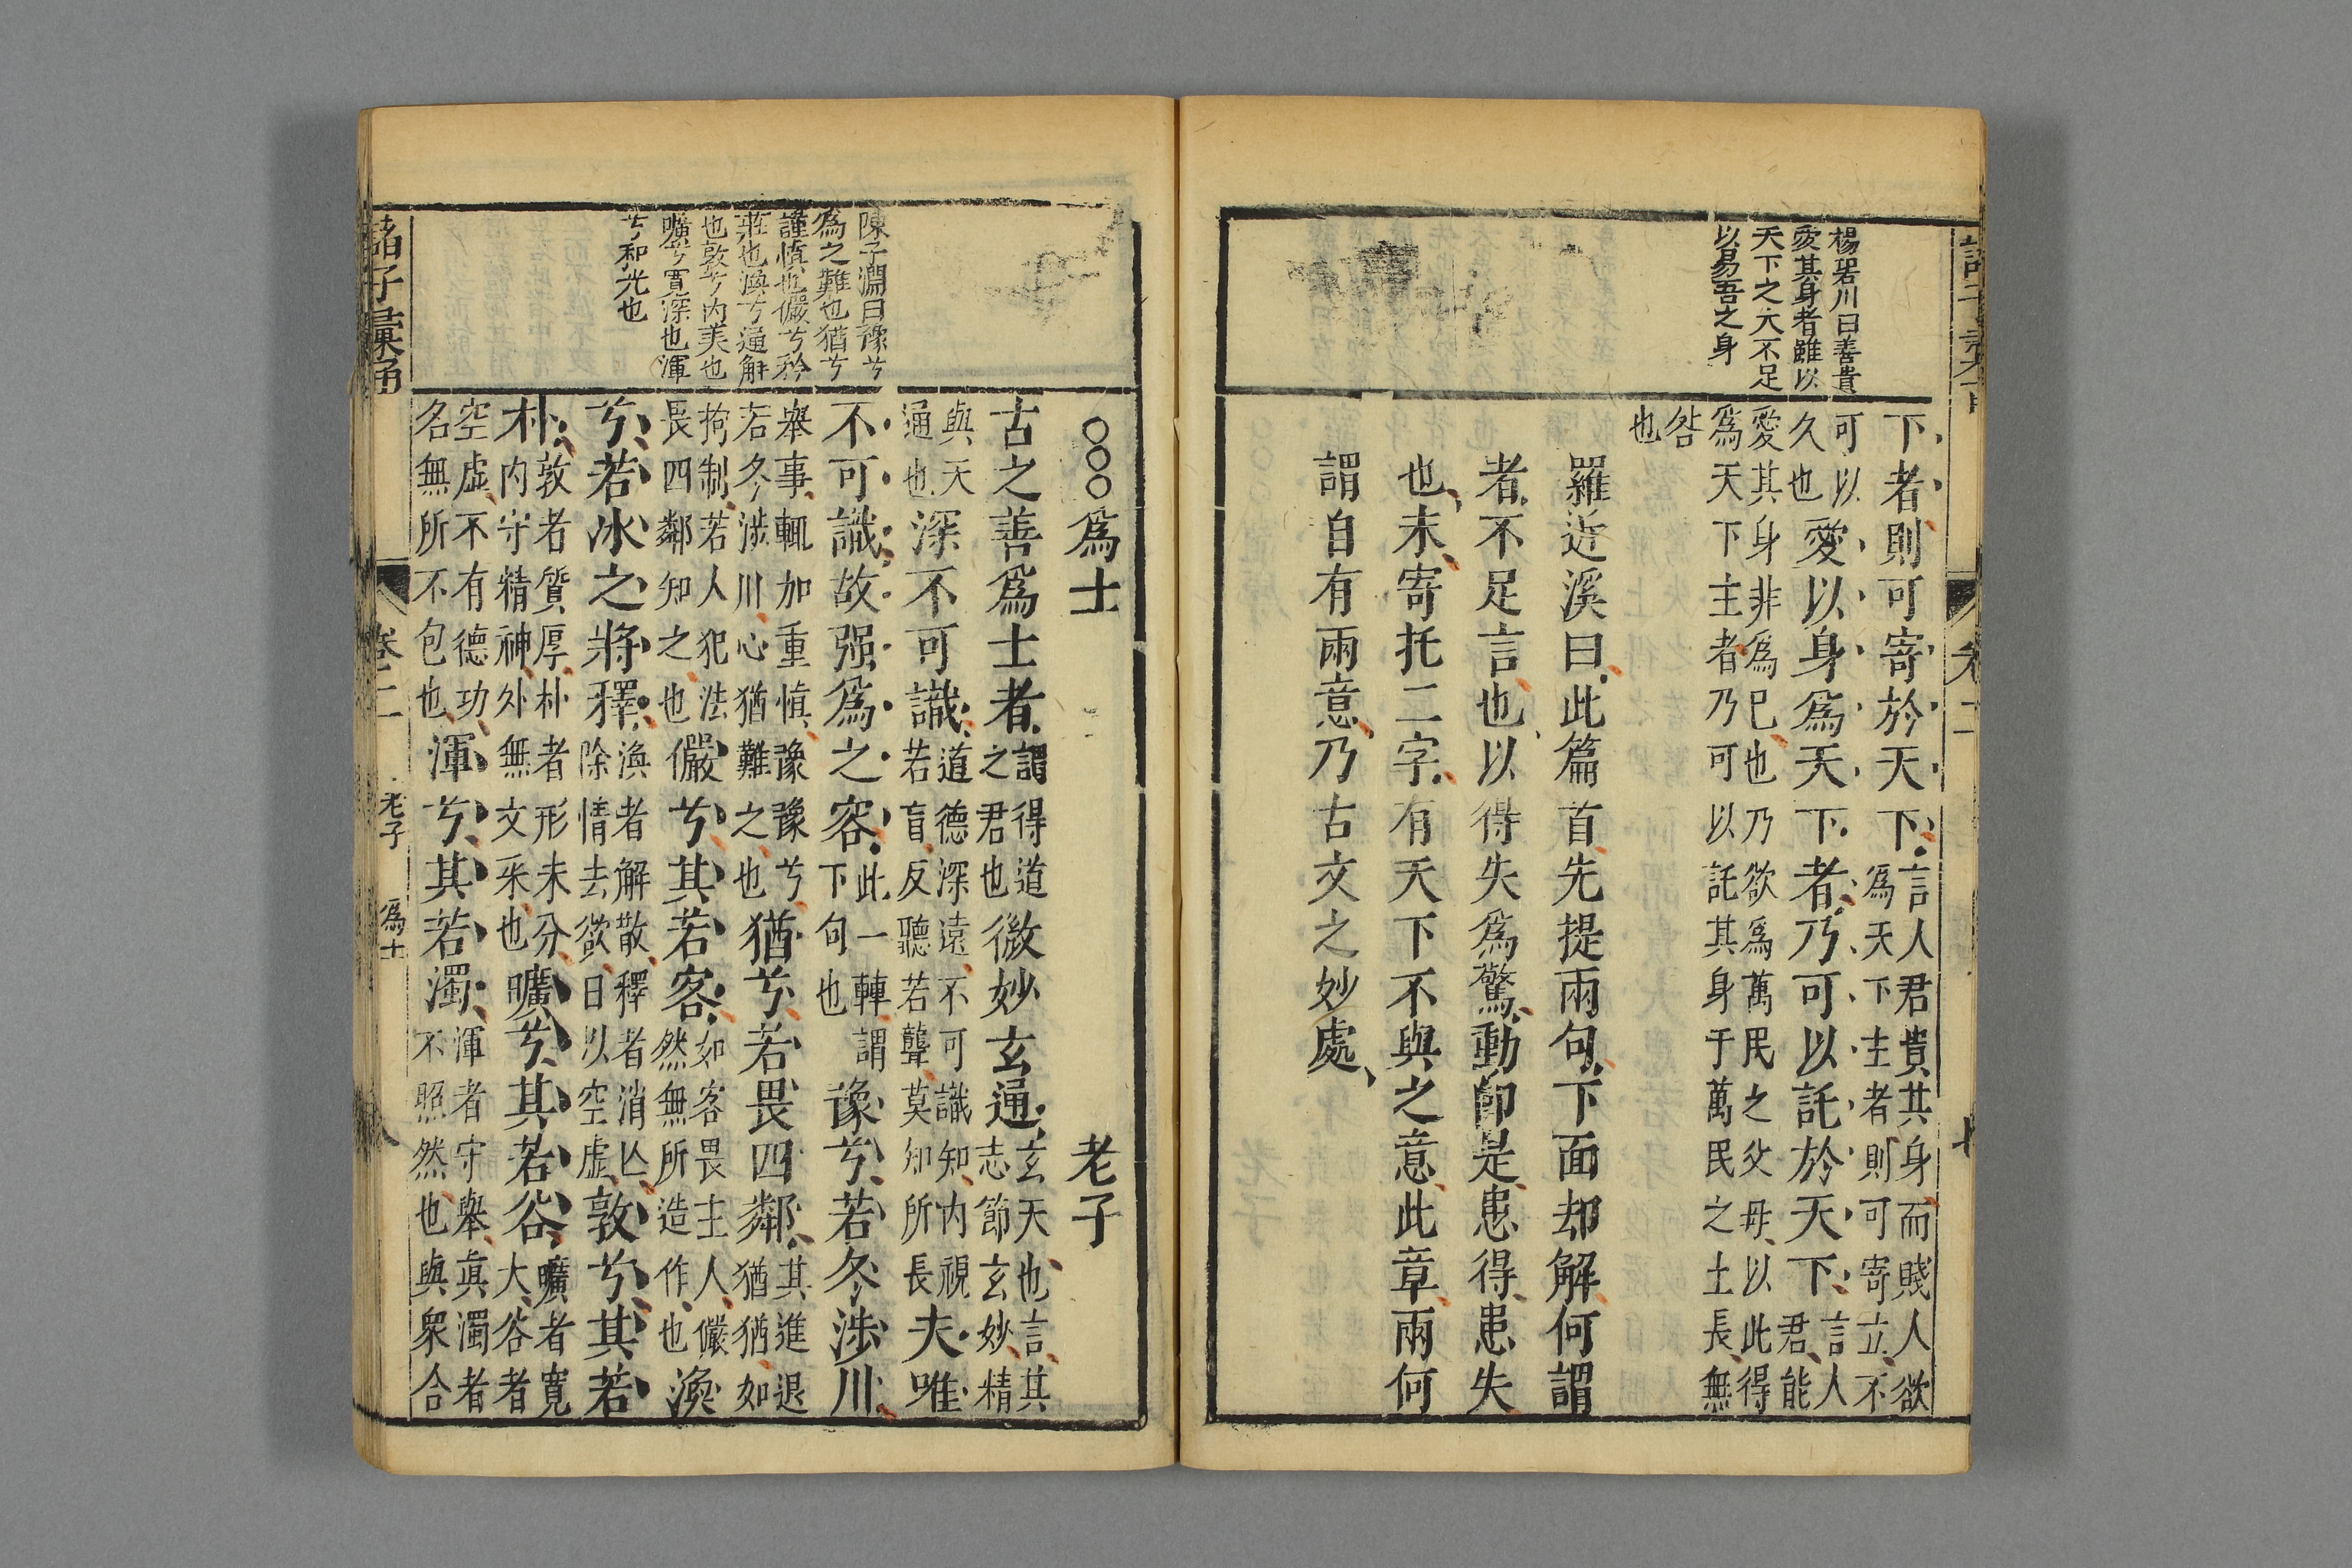 楊川曰善貴
愛其身者雖以
天下之大不足
以易吾之身
下者則可寄於天下言人君貴其身而賤人欲爲天下主者則可寄立不
可以久也愛以身爲天下者乃可以託於天下言人君能
愛其身非爲已也乃欲爲萬民之父母以此得爲天下主者乃可以託其身于萬民之土長無
咎也
羅近溪曰此篇首先提兩句下面却解何謂
者不足言也以得失爲驚動即是患得患失
也末寄托二字有天下不與之意此章兩何
謂自有兩意乃古文之妙處
陳子淵曰豫兮
為之難也猶兮
謹慎也儼兮矜
莊也渙兮通解
也敦兮内美也
曠兮寬深也渾
兮和光也
○○○爲士 老子
古之善爲士者謂得道之君也微妙玄通玄天也言其志節玄妙精
與天通也深不可識道德深遠不可識知内視若盲反聽若聾莫知所長夫唯
不可識故强爲之容此一轉謂下句也豫兮若冬涉川
舉事輒加重慎豫豫兮若冬涉川心猶難之也猶兮若畏四鄰其進退猶猶如
拘制若人犯法畏四鄰知之也儼兮其若客如客畏主人儼然無所造作也渙
兮若冰之將釋渙者解散釋者消亾除情去欲日以空虛敦兮其若
朴敦者質厚朴者形未分内守精神外無文采也曠兮其若谷曠者寬大谷者
空虛不有德功名無所不包也渾兮其若濁渾者守舉眞濁者不照然也與衆合
諸子彙函
卷二
老子
爲士
八